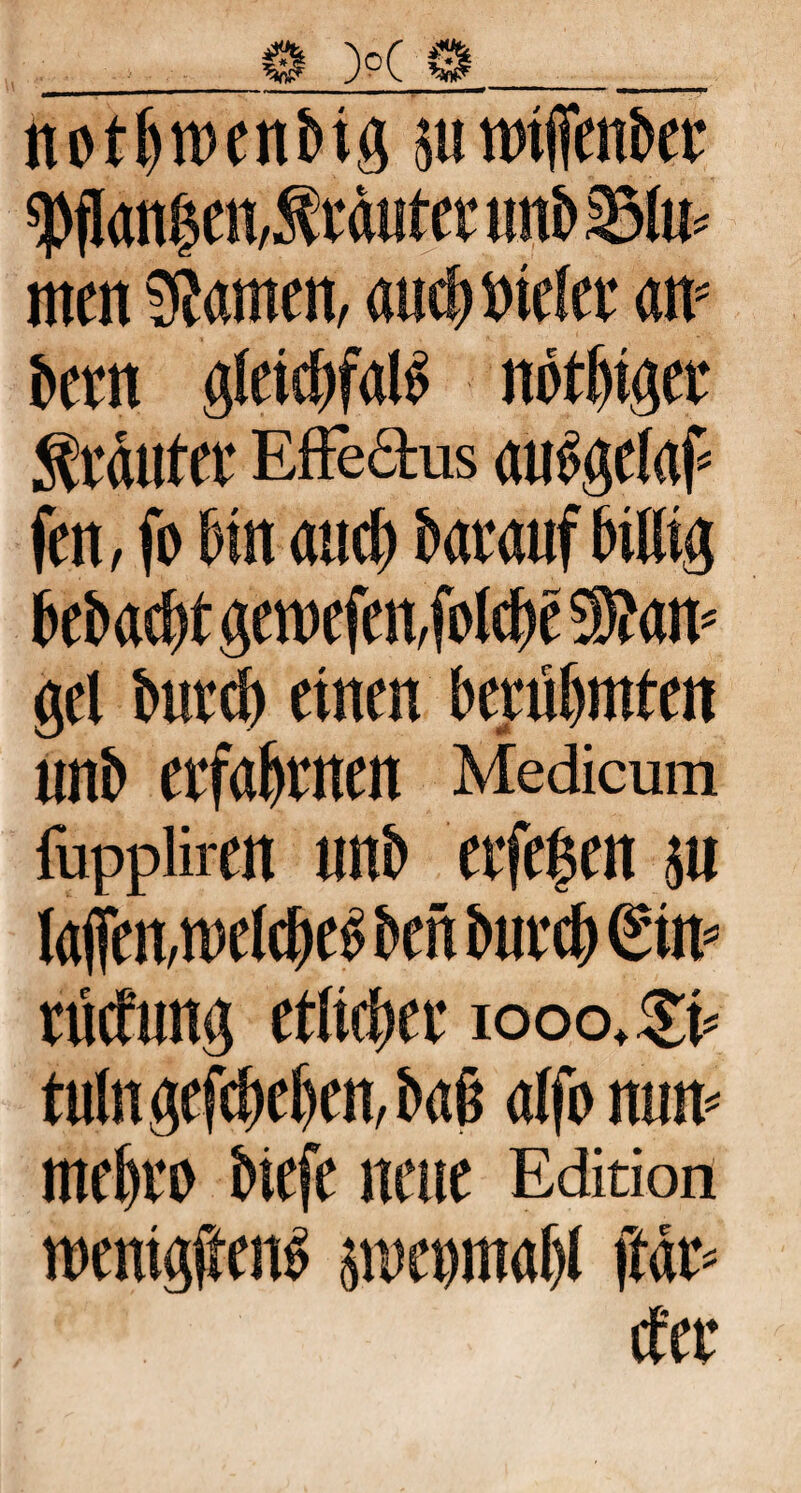 )o(
nothwendig zu wissender
Pflantzen, Kräuter und Blu⸗
men Namen, auch vieler an⸗
dern gleichfals nöthiger
Kräuter Effectus ausgelas⸗
sen, so bin auch darauf billig
bedacht gewesen, solche Män⸗
gel durch einen berühmten
und erfahrnen Medicum
suppliren und ersetzen zu
lassen, welches deñ durch Ein⸗
rückung etlicher 1000. Ti⸗
tuln geschehen, daß also nun⸗
mehro diese neue Edition
wenigstens zweymahl stär⸗
cker